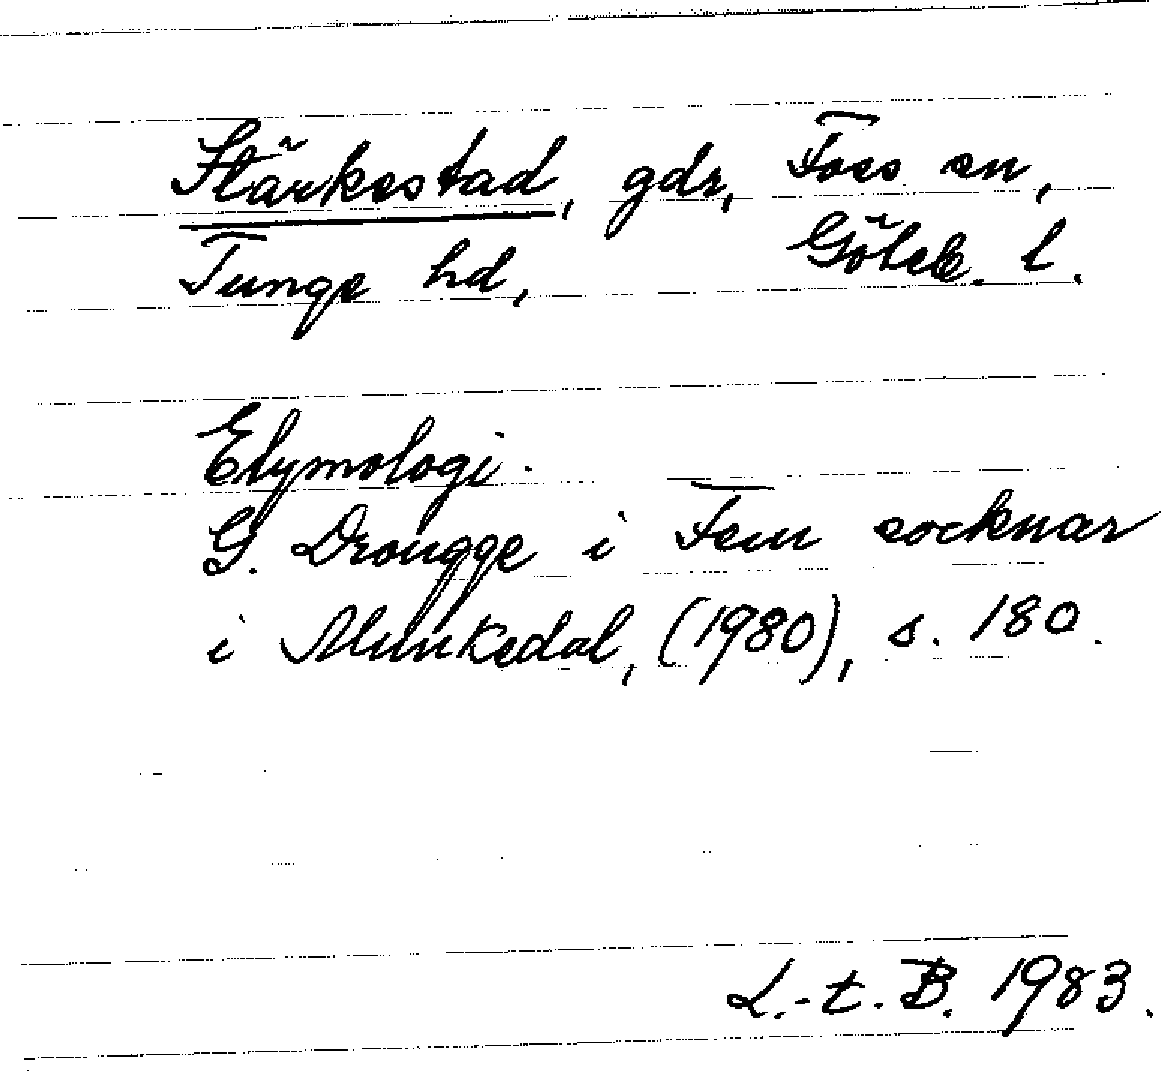 Stärkestad, gdr, Foss sn,
Tunge hd, Göteb. l.
Etymologi.
G. Drougge i Fem socknar
i Munkedal, (1980), s. 180.
L.-t. B. 1983.